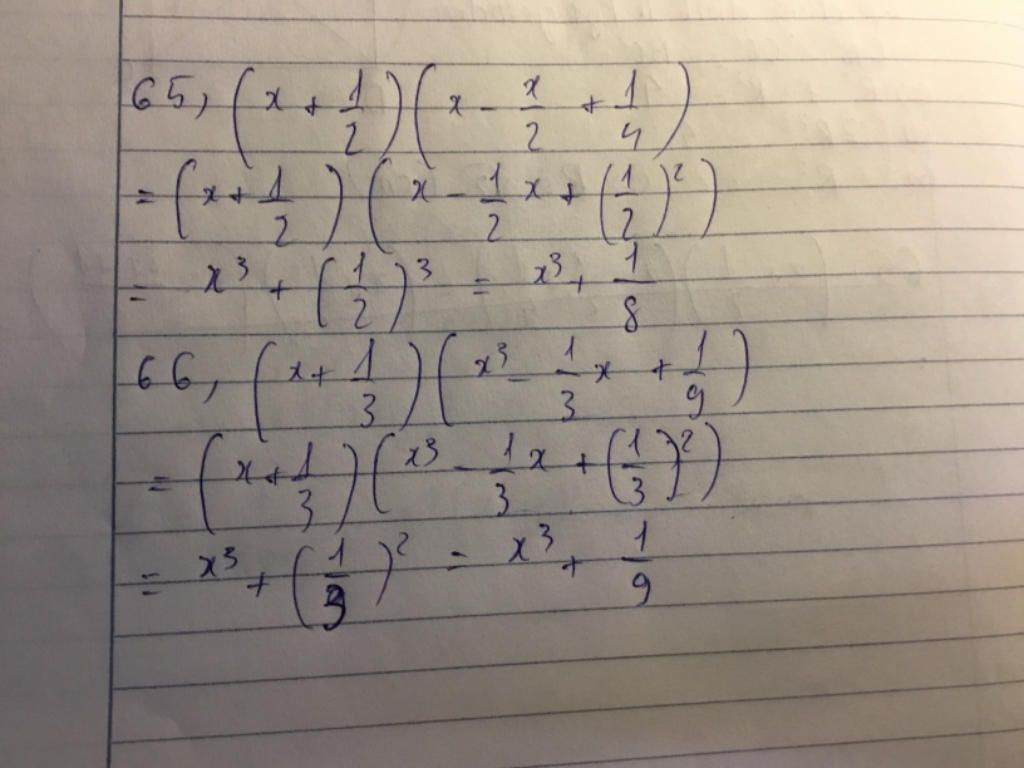 65, (x + 1/2)(x - x/2 + 1/4)
= (x + 1/2)(x - 1/2 x + (1/2)²)
= x³ + (1/2)³ = x³ + 1/8
66, (x + 1/3)(x³ - 1/3 x + 1/9)
= (x + 1/3)(x³ - 1/3 x + (1/3)²)
= x³ + (1/3)² = x³ + 1/9